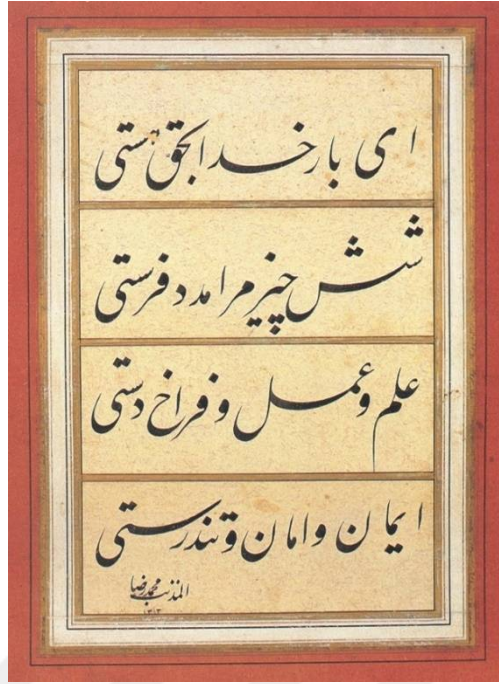 ای بار خدا بحق هستی
شش چیز مرا مدد فرستی
علم و عمل و فراخ دستی
ایمان و امان و تندرستی
المذنب محمدرضا